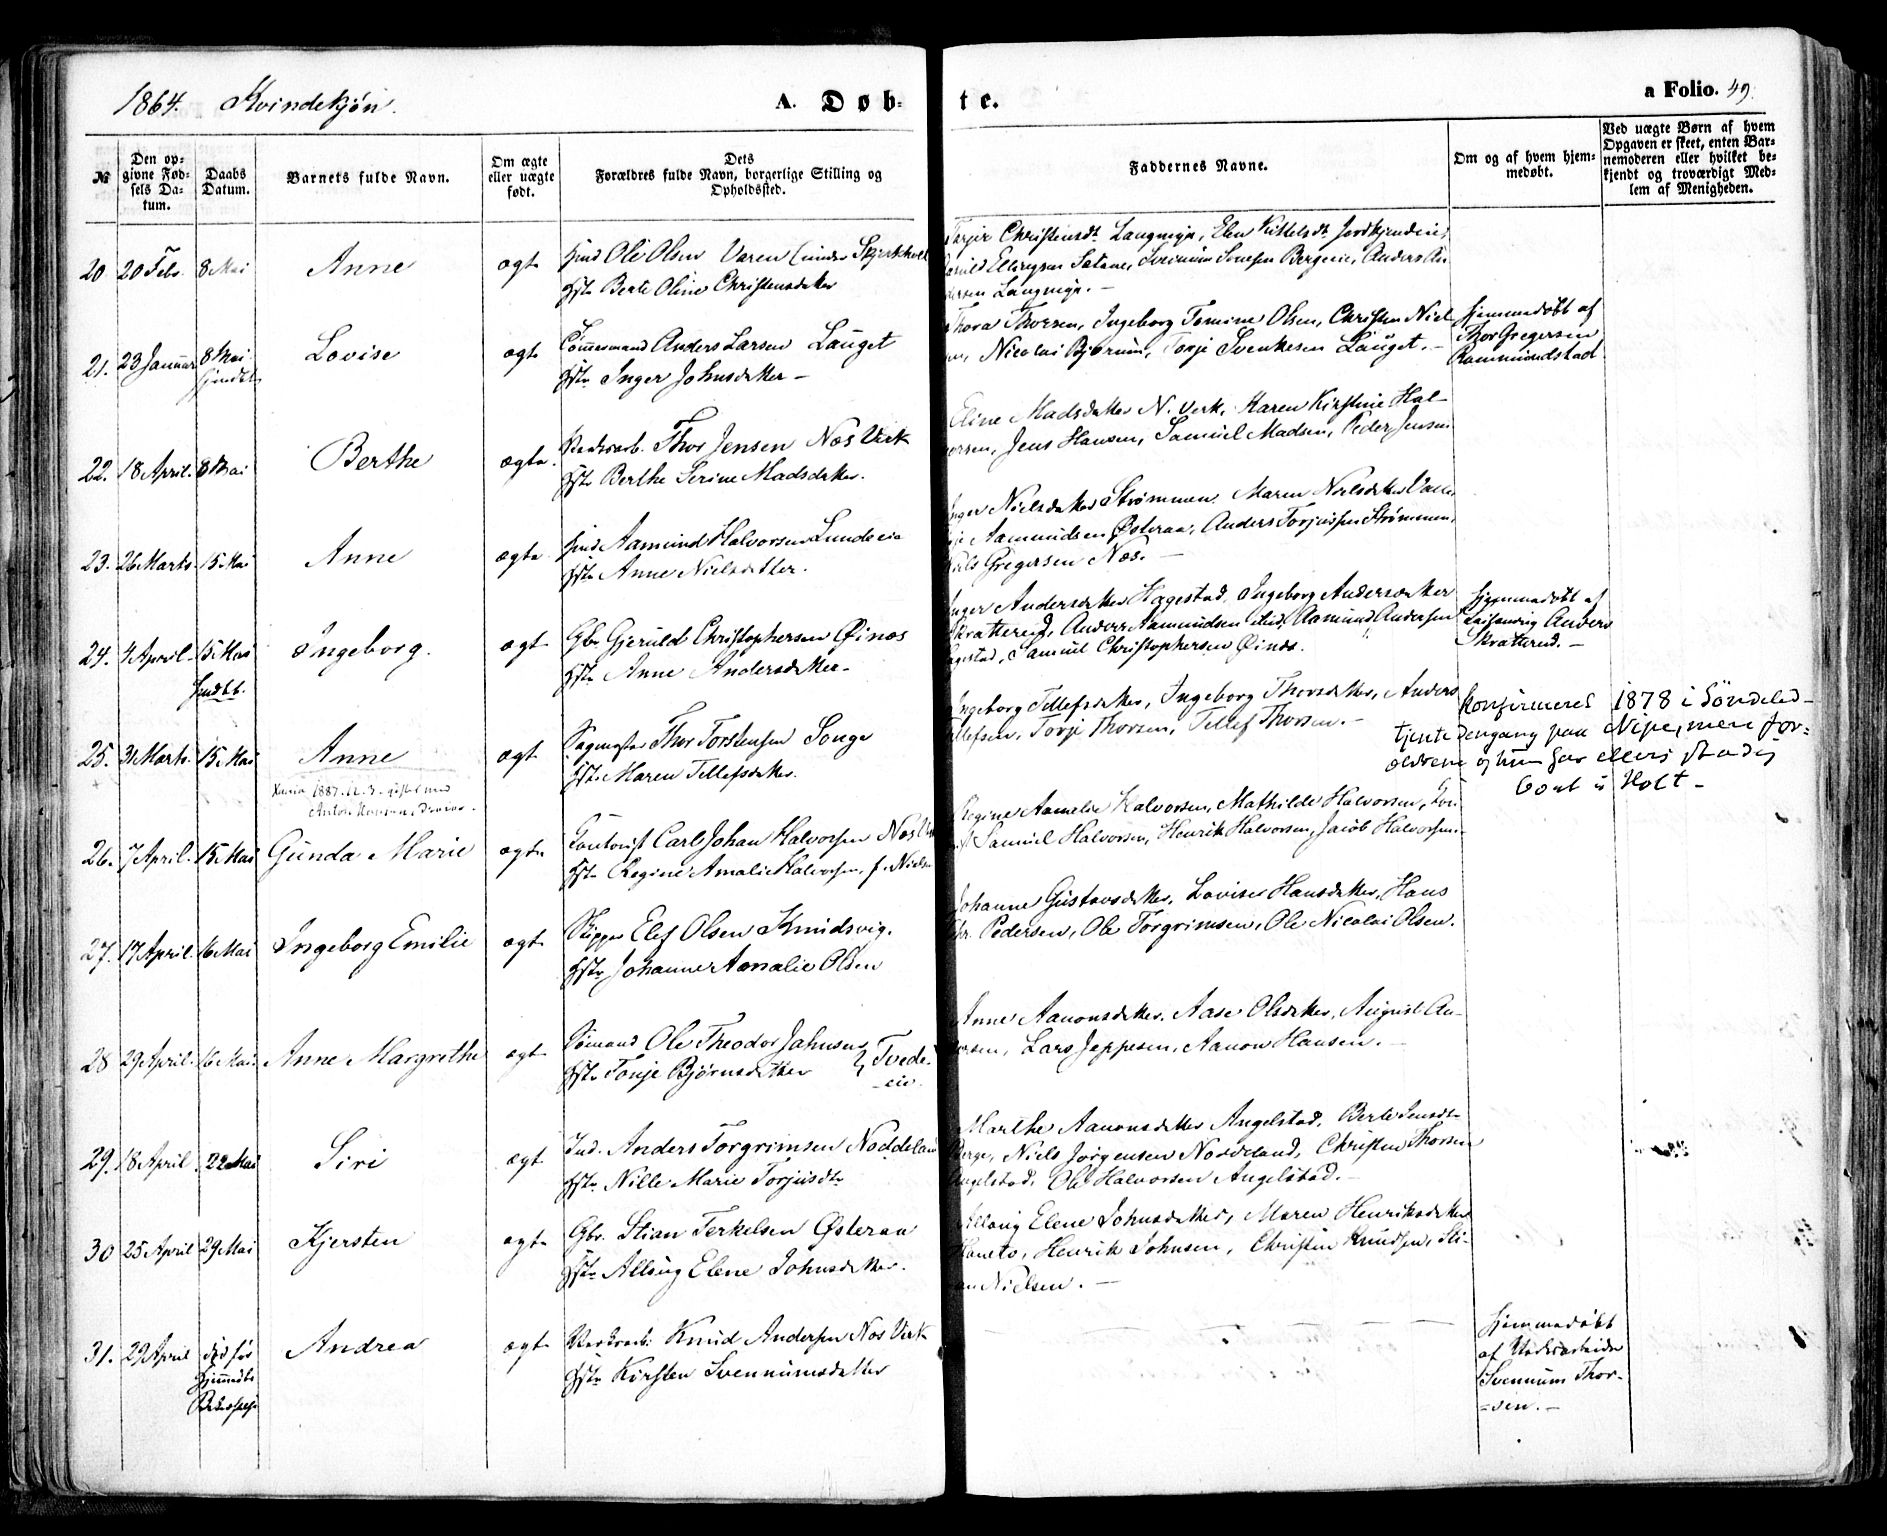 1864. Kvindekjøn.
A. Døbte.
a Folio. 49.
№
Den opgivne Fødsels Datum.
Daabs Datum.
Barnets fulde Navn.
Om ægte eller uægte født.
Dets Forældres fulde Navn, borgerlige Stilling og Opholdssted.
Faddernes Navne.
Om og af hvem hjemmedøbt.
Ved uægte Børn af hvem Opgaven er skeet, enten Barnemoderen eller hvilket bekjendt og troværdigt Medlem af Menigheden.
20 20 Febr. 8 Mai Anne ægte Ole Olsen Varen under
Hstr Berte Oline Christensdatter
Christensdt. Langmyr, Elen Kittelsdt.
Anders An-
dersen Langmyr. —
21. 23 Januar 8 Mai Lovise ægte Tømmermand Anders Larsen Lauget
Hstr Inger Johnsdatter —
Thora Thorsen, Ingeborg Tomine Olsen, Christen Niel-
Nicolai Bjorum, Torje Svenkesen Lauget. —
Hjemmedøbt af
Thor Gregersen
Rammundstad
22. 18 April. 8 Mai Berthe ægte. Thor Jensen Næs Verk
Hstr Berthe Serine Madsdatter.
Eline Madsdatter N. Verk, Karen Kirstine Hal-
vorsen, Jens Hansen, Samuel Madsen, Peder Jensen
23. 26 Marts. 15 Mai Anne ægte. Aamund Halvorsen Lundeie
Hstr Anne Nielsdatter.
Inger Nielsdatter Strømmen, Maren Nielsdatter
Aamundsen Østeraa, Anders Torjussen Strømmen,
Niels Gregersen Næs. —
24. 4 April. 15 Mai Ingeborg. ægte Gbr Gjeruld Christophersen Øinæs
Hstr Anne Andersdatter.
Inger Andersdatter Hagestad, Ingeborg Andersdatter
Skratterud, Anders Aamundsen ibid, Aamund Andersen
Hagestad, Samuel Christophersen Øinæs.
Hjemmedøbt af
Anders
Skratterud. —
25. 31 Marts. 15 Mai Anne ægte Thor Torstensen Songe
Hstr Maren Tellefsdatter.
1887. 12. 3. gift med
Ingeborg Tellefsdatter, Ingeborg Thorsdatter, Anders
Tellefsen, Torje Thorsen, Tellef Thorsen. —
Konfirmeret 1878 i Søndeled —
tjente dengang paa Nipe, men for-
ældrene og hun har ellers stadig
boet i Holt —
26. 7 April. 15 Mai Gunda Marie ægte Carl Johan Halvorsen Næs Verk
Hstr Regine Amalie Halvorsen, f. Nielsen
Regine Aamalie Halvorsen, Mathilde Halvorsen,
Samuel Halvorsen, Henrik Halvorsen, Jacob Halvorsen.
27. 17 April. 16 Mai Ingeborg Emilie ægte Skipper Elef Olsen Knudsvig.
Hstr Johanne Amalie Olsen
Johanne Gustavsdatter, Lovise Hansdatter, Hans
Chr. Pedersen, Ole Torgrimsen, Ole Nicolai Olsen.
28 29 April. 16 Mai. Anne Margrethe ægte Sømand Ole Theodor Jahnsen
Hstr Tonje Bjørnsdatter } Tvede-
eie.
Anne Aanonsdatter, Aase Olsdatter, August An-
dersen, Lars Jeppesen, Aanon Hansen. —
29. 18 April 22 Mai Siri ægte Ind. Anders Torgrimsen Noddeland
Hstr Nille Marie Torjusdtr
Marthe Aanonsdatter Angelstad, Berte Jensdtr
Berge, Niels Jørgensen Norddeland, Christen Thorsen
Angelstad, Ole Halvorsen Angelstad. —
30 25 April 29 Mai Kjersten ægte Gbr. Stian Terkelsen Østeraa
Hstr Allaug Elene Johnsdatter.
Allaug Elene Johnsdatter, Maren Henriksdatter
Henrik Johnsen, Christen Knudsen, Sti-
an Nielsen. —
31. 29 April død før Andrea ægte Knud Andersen Næs Verk
Hstr Kirsten Svennumsdatter
Hjemmedøbt
af Verksarbeider
Svennum Thor-
=sen. —